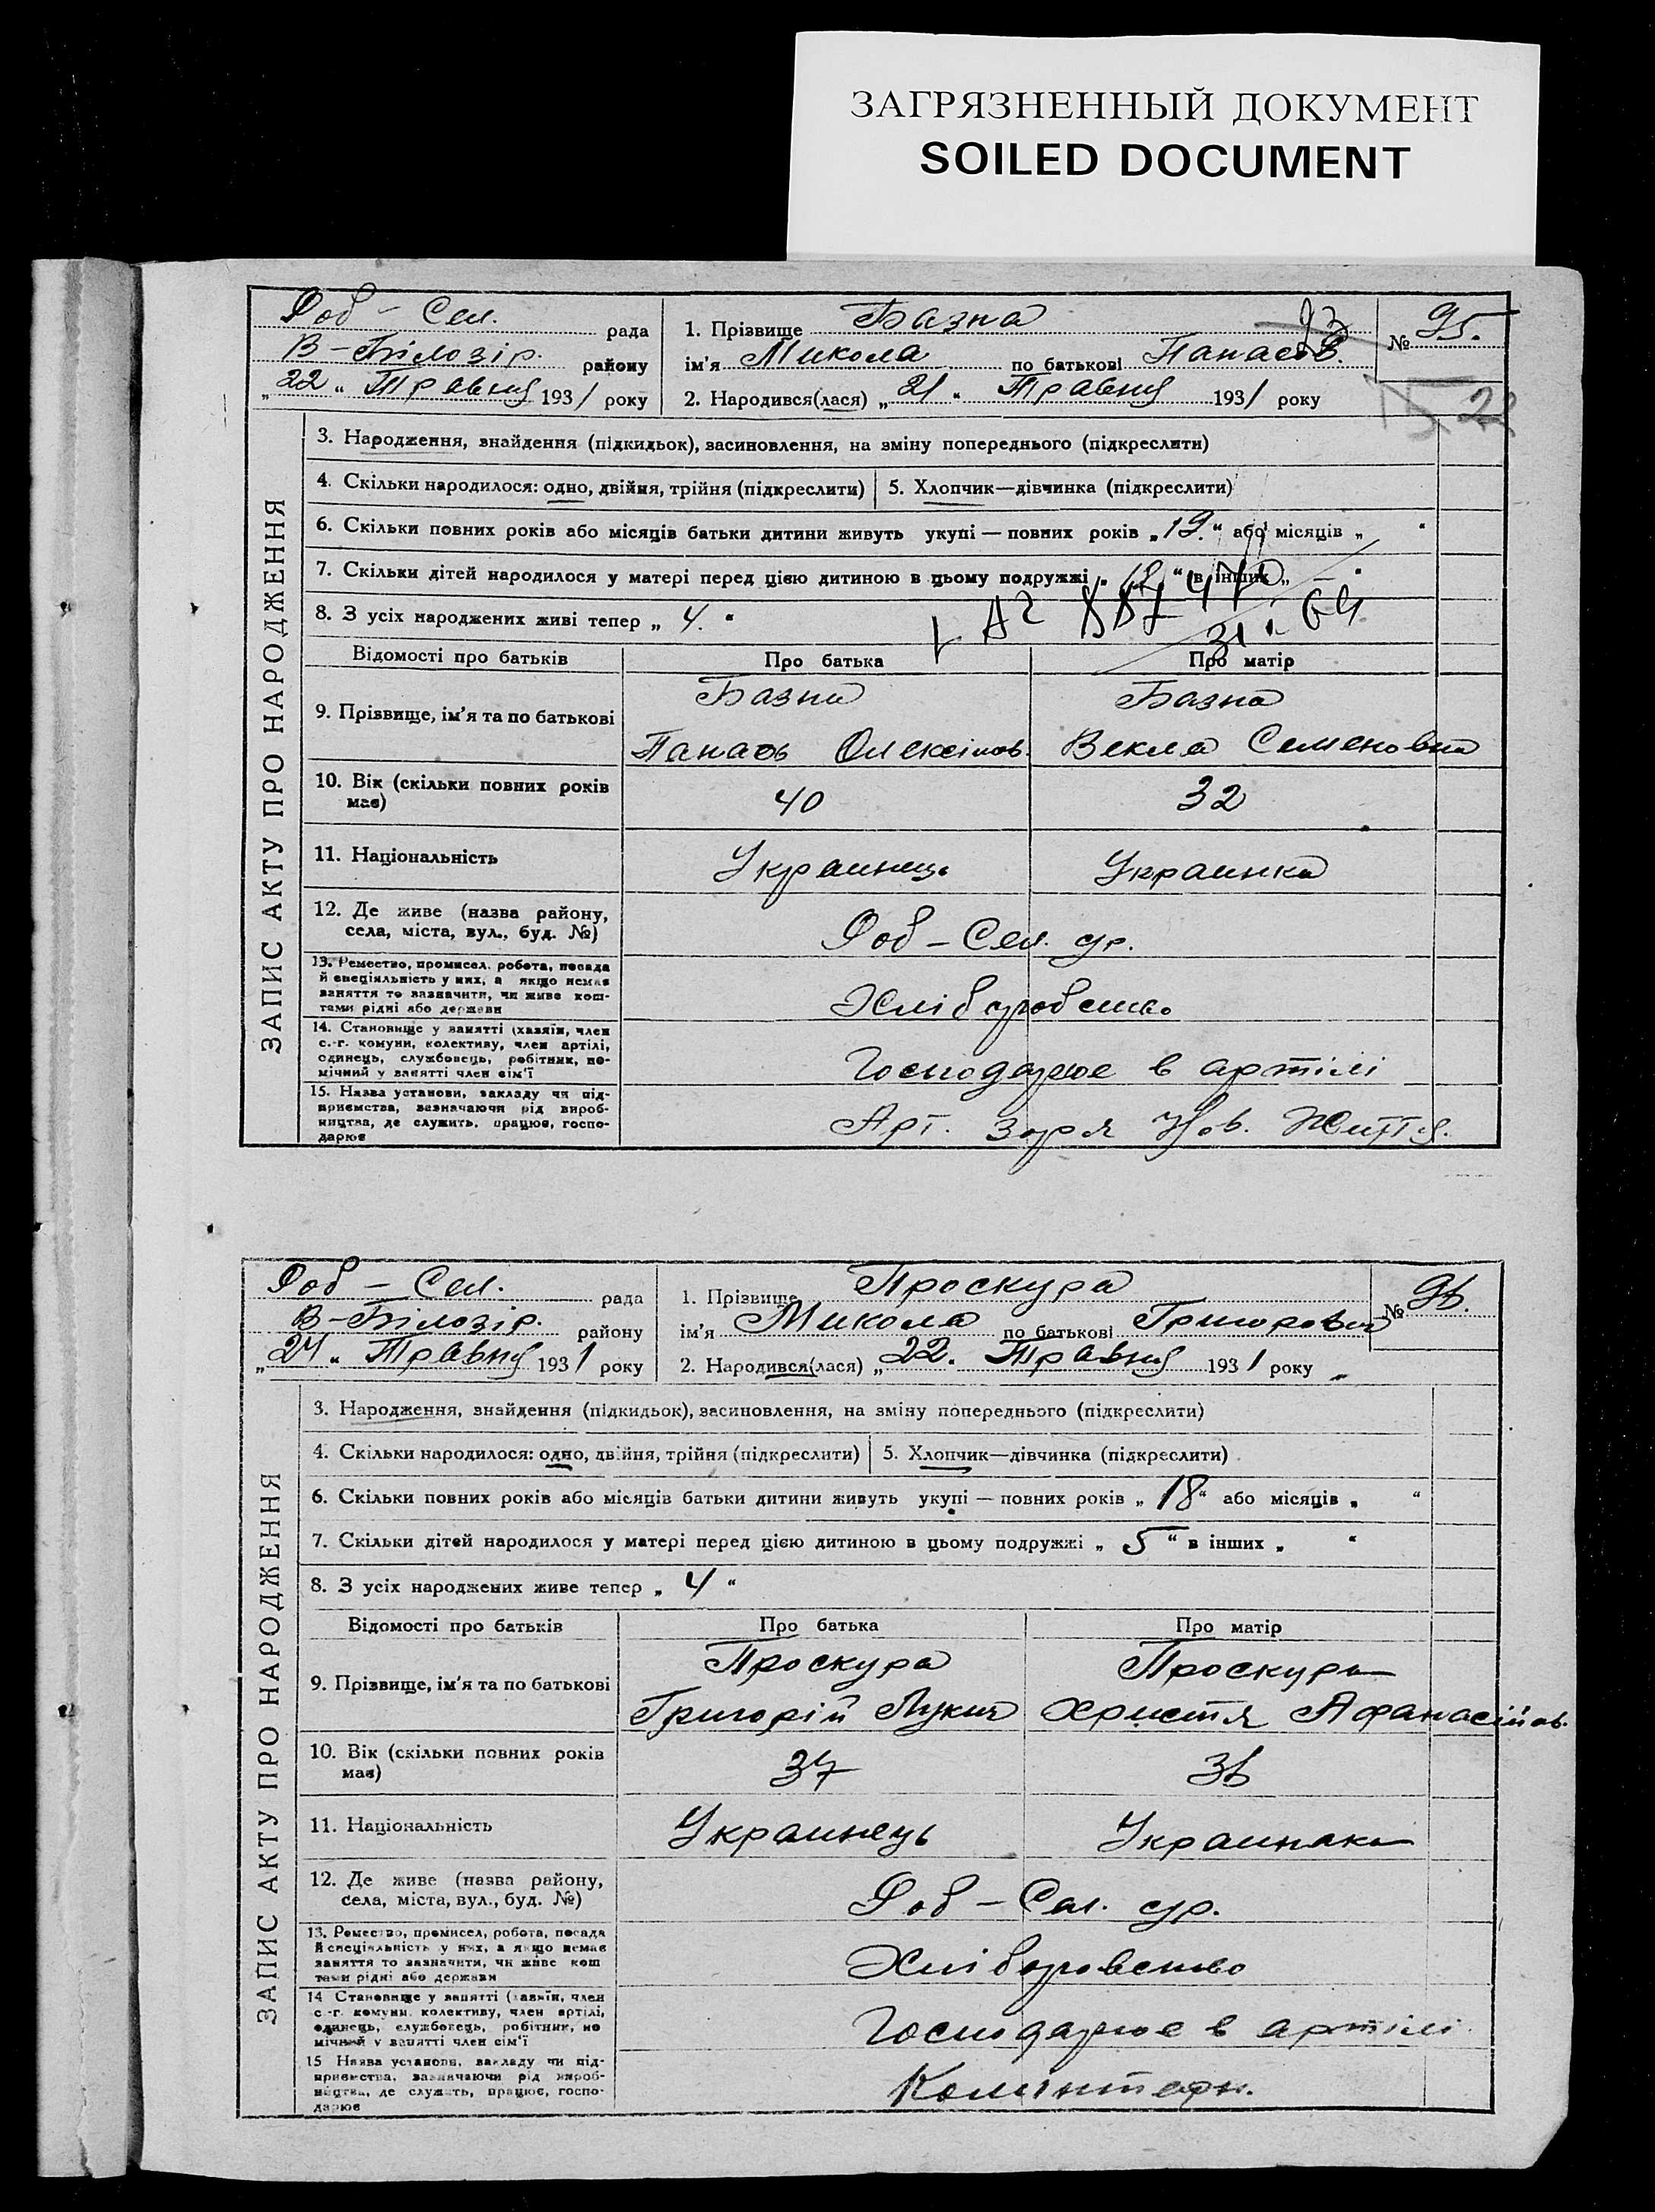 ЗАГРЯЗНЕННЫЙ ДОКУМЕНТ
SOILED DOCUMENT
Роб - Сел. рада
В-Білозір. району
„22“ Травня 1931 року
1. Прізвище Базна
ім'я Микола по батькові Панасов.
2. Народився(лася) „21“ Травня 1931 року
№ 95.
22
ЗАПИС АКТУ ПРО НАРОДЖЕННЯ
3. Народження, знайдення (підкидьок), засиновлення, на зміну попереднього (підкреслити)
4. Скільки народилося: одно, двійня, трійня (підкреслити) 5. Хлопчик—дівчинка (підкреслити)
6. Скільки повних років або місяців батьки дитини живуть укупі — повних років „19.“ або місяців „ “
7. Скільки дітей народилося у матері перед цією дитиною в цьому подружжі „ “ в інших „ – “
8. З усіх народжених живі тепер „ 4. “
Відомості про батьків Про батька Про матір
9. Прізвище, ім'я та по батькові
Базна Базна
Панась Олексіїов. Векла Семеновна
10. Вік (скільки повних років має) 40 32
11. Національність Украинець Украинка
12. Де живе (назва району, села, міста, вул., буд. №) Роб - Сел. ср.
13. Ремество, промисел, робота, посада й спеціяльність у них, а якщо немає заняття то зазначити, чи живе коштами рідні або держави
Хліборобство
14. Становище у занятті (хазяїн, член с.-г. комуни, колективу, член артілі, одинець, службовець, робітник, помічний у занятті член сім'ї
Господарює в артілі
15. Назва установи, закладу чи підприємства, зазначаючи рід виробництва, де служить, працює, господарює
Арт. Зоря Нов. Життя.
Роб - Сел. рада
В-Білозір. району
„24“ Травня 1931 року
1. Прізвище Проскура
ім'я Микола по батькові Григорович
2. Народився(лася) „22. Травня 1931 року
№ 96.
ЗАПИС АКТУ ПРО НАРОДЖЕННЯ
3. Народження, знайдення (підкидьок), засиновлення, на зміну попереднього (підкреслити)
4. Скільки народилося: одно, двійня, трійня (підкреслити) 5. Хлопчик—дівчинка (підкреслити)
6. Скільки повних років або місяців батьки дитини живуть укупі — повних років „ 18“ або місяців „ “
7. Скільки дітей народилося у матері перед цією дитиною в цьому подружжі „ 5 “ в інших „ “
8. З усіх народжених живе тепер „ 4 “
Відомості про батьків Про батька Про матір
9. Прізвище, ім'я та по батькові
Проскура Проскура
Григорій Лукич Христя Афанасіїов.
10. Вік (скільки повних років має) 37 36
11. Національність Украинець Украинака
12. Де живе (назва району, села, міста, вул., буд. №) Роб - Сел. ср.
13. Ремество, промисел, робота, посада й спеціяльність у них, а якщо немає заняття то зазначити, чи живе коштами рідні або держави
Хліборовство
14 Становище у занятті (хазяїн, член с.-г. комуни, колективу, член артілі, одинець, службовець, робітник, помічний у занятті член сім'ї
Господарює в артілі
15 Назва установи, закладу чи підприємства, зазначаючи рід виробництва, де служить, працює, господарює
Комінтерн.